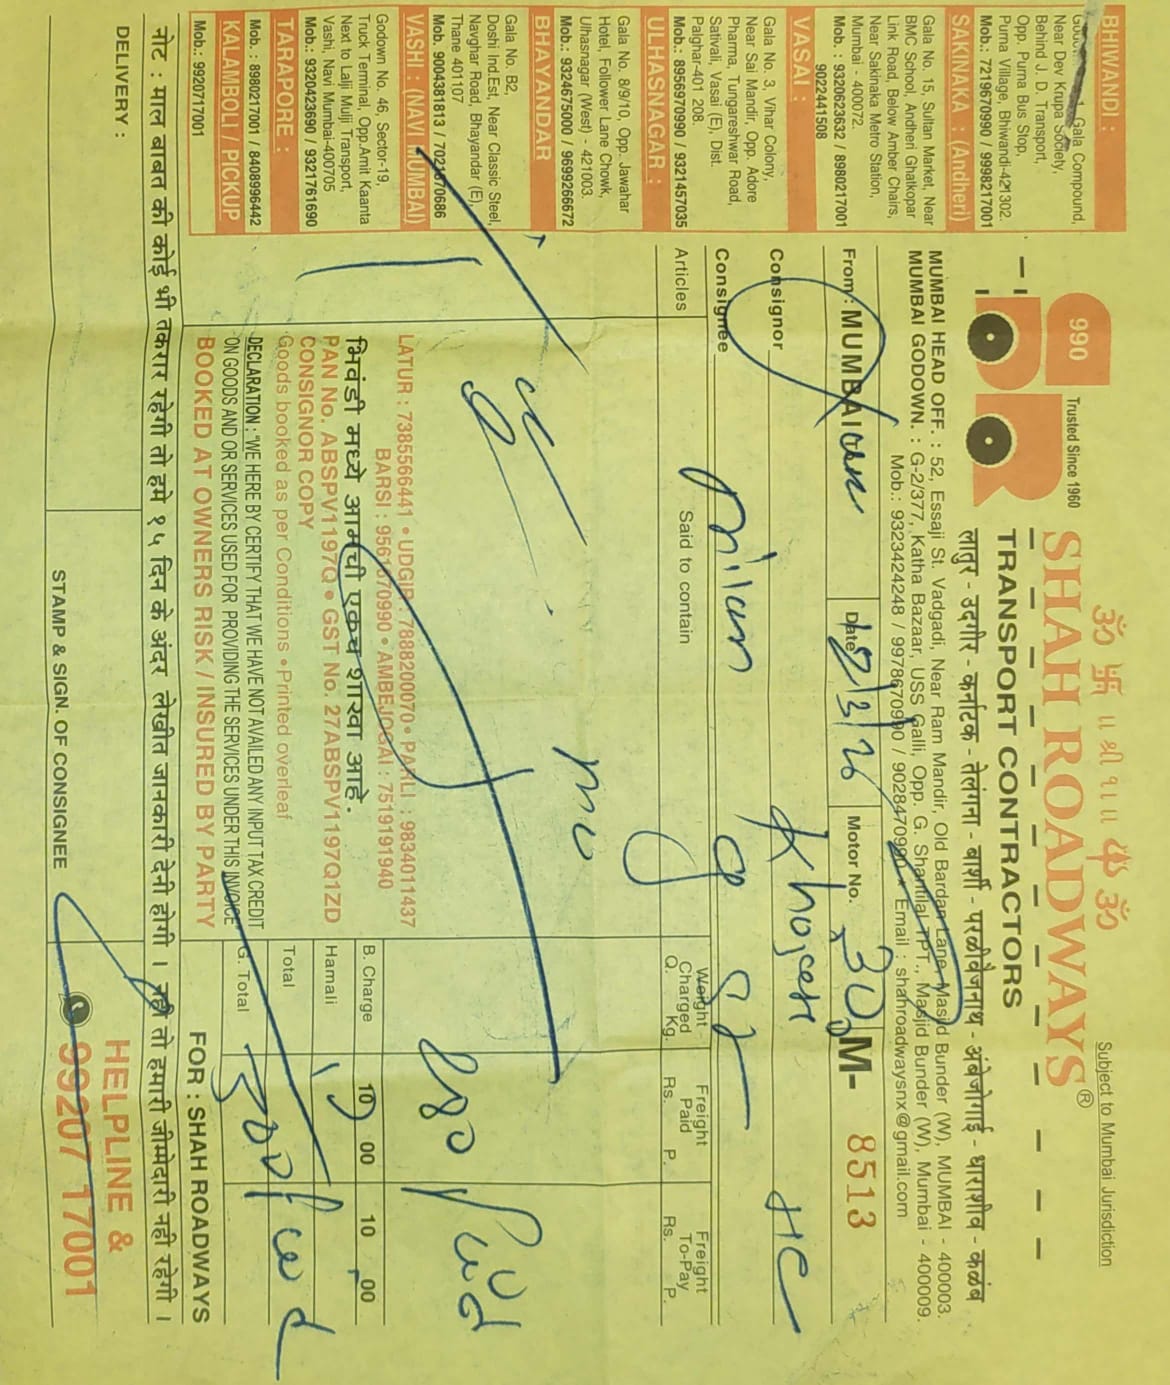 ॐ 卐 ॥ श्री ९।। ॐ
Subject to Mumbai Jurisdiction
990
Trusted Since 1960
SHAH ROADWAYS®
TRANSPORT CONTRACTORS
लातुर - उदगीर - कर्नाटक - तेलंगना - बार्शी - परळीवैजनाथ - अंबेजोगाई - धाराशीव - कळंब
MUMBAI HEAD OFF. : 52, Essaji St. Vadgadi, Near Ram Mandir, Old Bardan Lane, Masjid Bunder (W), MUMBAI - 400003.
MUMBAI GODOWN. : G-2/377, Katha Bazaar, USS Galli, Opp. G. Shantilal TPT., Masjid Bunder (W), Mumbai - 400009.
Mob.: 9323424248 / 9978670990 / 9028470990 • Email : shahroadwaysnx@gmail.com
From: MUMBAI
Date 2/3/26
Motor No.
M- 8513
Consignor
Consignee milan
Articles
Said to contain
Weight - Charged
Q. Kg.
Freight Paid
Rs. P.
Freight To-Pay
Rs. P.
280 Paid
LATUR : 7385566441 • UDGIR : 7888200070 • PARLI : 9834011437
BARSI : 9561670990 • AMBEJOGAI : 7519191940
भिवंडी मध्ये आमची एकच शाखा आहे.
PAN No. ABSPV1197Q • GST No. 27ABSPV1197Q1ZD
CONSIGNOR COPY
Goods booked as per Conditions • Printed overleaf
DECLARATION : "WE HERE BY CERTIFY THAT WE HAVE NOT AVAILED ANY INPUT TAX CREDIT
ON GOODS AND OR SERVICES USED FOR PROVIDING THE SERVICES UNDER THIS INVOICE"
BOOKED AT OWNERS RISK / INSURED BY PARTY
B. Charge 10 00 10 00
Hamali 10
Total
G. Total 300 Paid
FOR : SHAH ROADWAYS
नोट : माल बाबत की कोई भी तकरार रहेगी तो हमे १५ दिन के अंदर लेखीत जानकारी देनी होगी । नही तो हमारी जीमेदारी नही रहेगी ।
DELIVERY :
STAMP & SIGN. OF CONSIGNEE
HELPLINE &
99207 17001
BHIWANDI :
Gala Compound,
Near Dev Krupa Society,
Behind J. D. Transport,
Opp. Purna Bus Stop,
Purna Village, Bhiwandi-421302.
Mob.: 7219670990 / 9998217001
SAKINAKA : (Andheri)
Gala No. 15, Sultan Market, Near
BMC School, Andheri Ghatkopar
Link Road, Below Amber Chairs,
Near Sakinaka Metro Station,
Mumbai - 400072.
Mob. : 9320623632 / 8980217001
9022441508
VASAI :
Gala No. 3, Vihar Colony,
Near Sai Mandir, Opp. Adore
Pharma, Tungareshwar Road,
Sativali, Vasai (E), Dist.
Palghar-401 208.
Mob.: 8956970990 / 9321457035
ULHASNAGAR :
Gala No. 8/9/10, Opp. Jawahar
Hotel, Follower Lane Chowk,
Ulhasnagar (West) - 421003.
Mob.: 9324675000 / 9699266672
BHAYANDAR
Gala No. B2,
Doshi Ind.Est, Near Classic Steel,
Navghar Road, Bhayandar (E),
Thane 401107
Mob. 9004381813 / 7021370686
VASHI : (NAVI MUMBAI)
Godown No. 46, Sector-19,
Truck Terminal, Opp.Amit Kaanta
Next to Lalji Mulji Transport,
Vashi, Navi Mumbai-400705
Mob.: 9320423690 / 9321761690
TARAPORE :
Mob. : 8980217001 / 8408996442
KALAMBOLI / PICKUP
Mob.: 9920717001